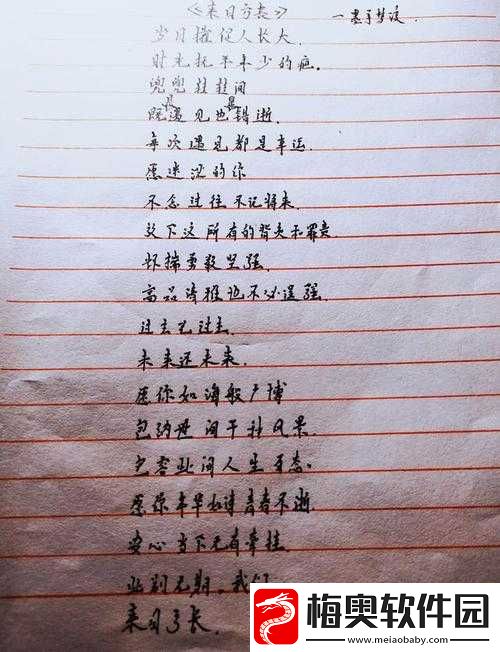 《来日方长》
岁月催促人长大
时光抚平不少的疤。
兜兜转转间
既是遇见也是错逝.
每次遇见都是幸运.
愿迷茫的你
不念过往不记将来.
放下这所有的背负和罪恶
怀揣勇敢坚强.
也不必逞强.
过去已过去.
未来还未来.
愿你如海般广博
包纳世间千种风景.
包容此间人生百态.
愿你年华如诗青春不逝.
安心当下无有牵挂.
此别无期.我们
来日方长.
梅奥软件园
www.meiaobaby.com